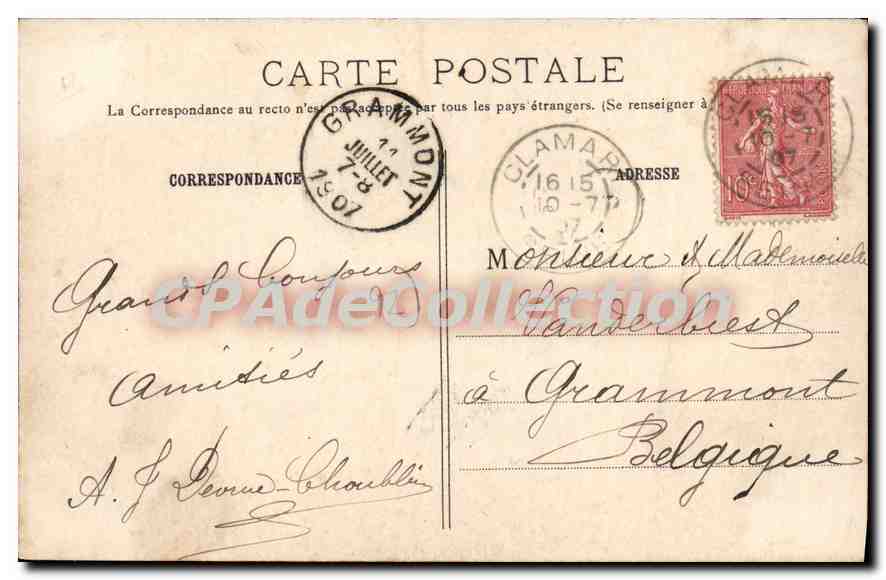 CARTE POSTALE
La Correspondance au recto n'est pas acceptée par tous les pays étrangers. (Se renseigner à
CORRESPONDANCE
ADRESSE
GRAMMONT
11
JUILLET
7-8
1907
CLAMART
16 15
10 -7
07
RÉPUBLIQUE FRANÇAISE
10c
Monsieur & Mademoiselle
Vanderbiest
à Grammont
Belgique
Grands bonjours
amitiés
A. J.
CPAdeCollection